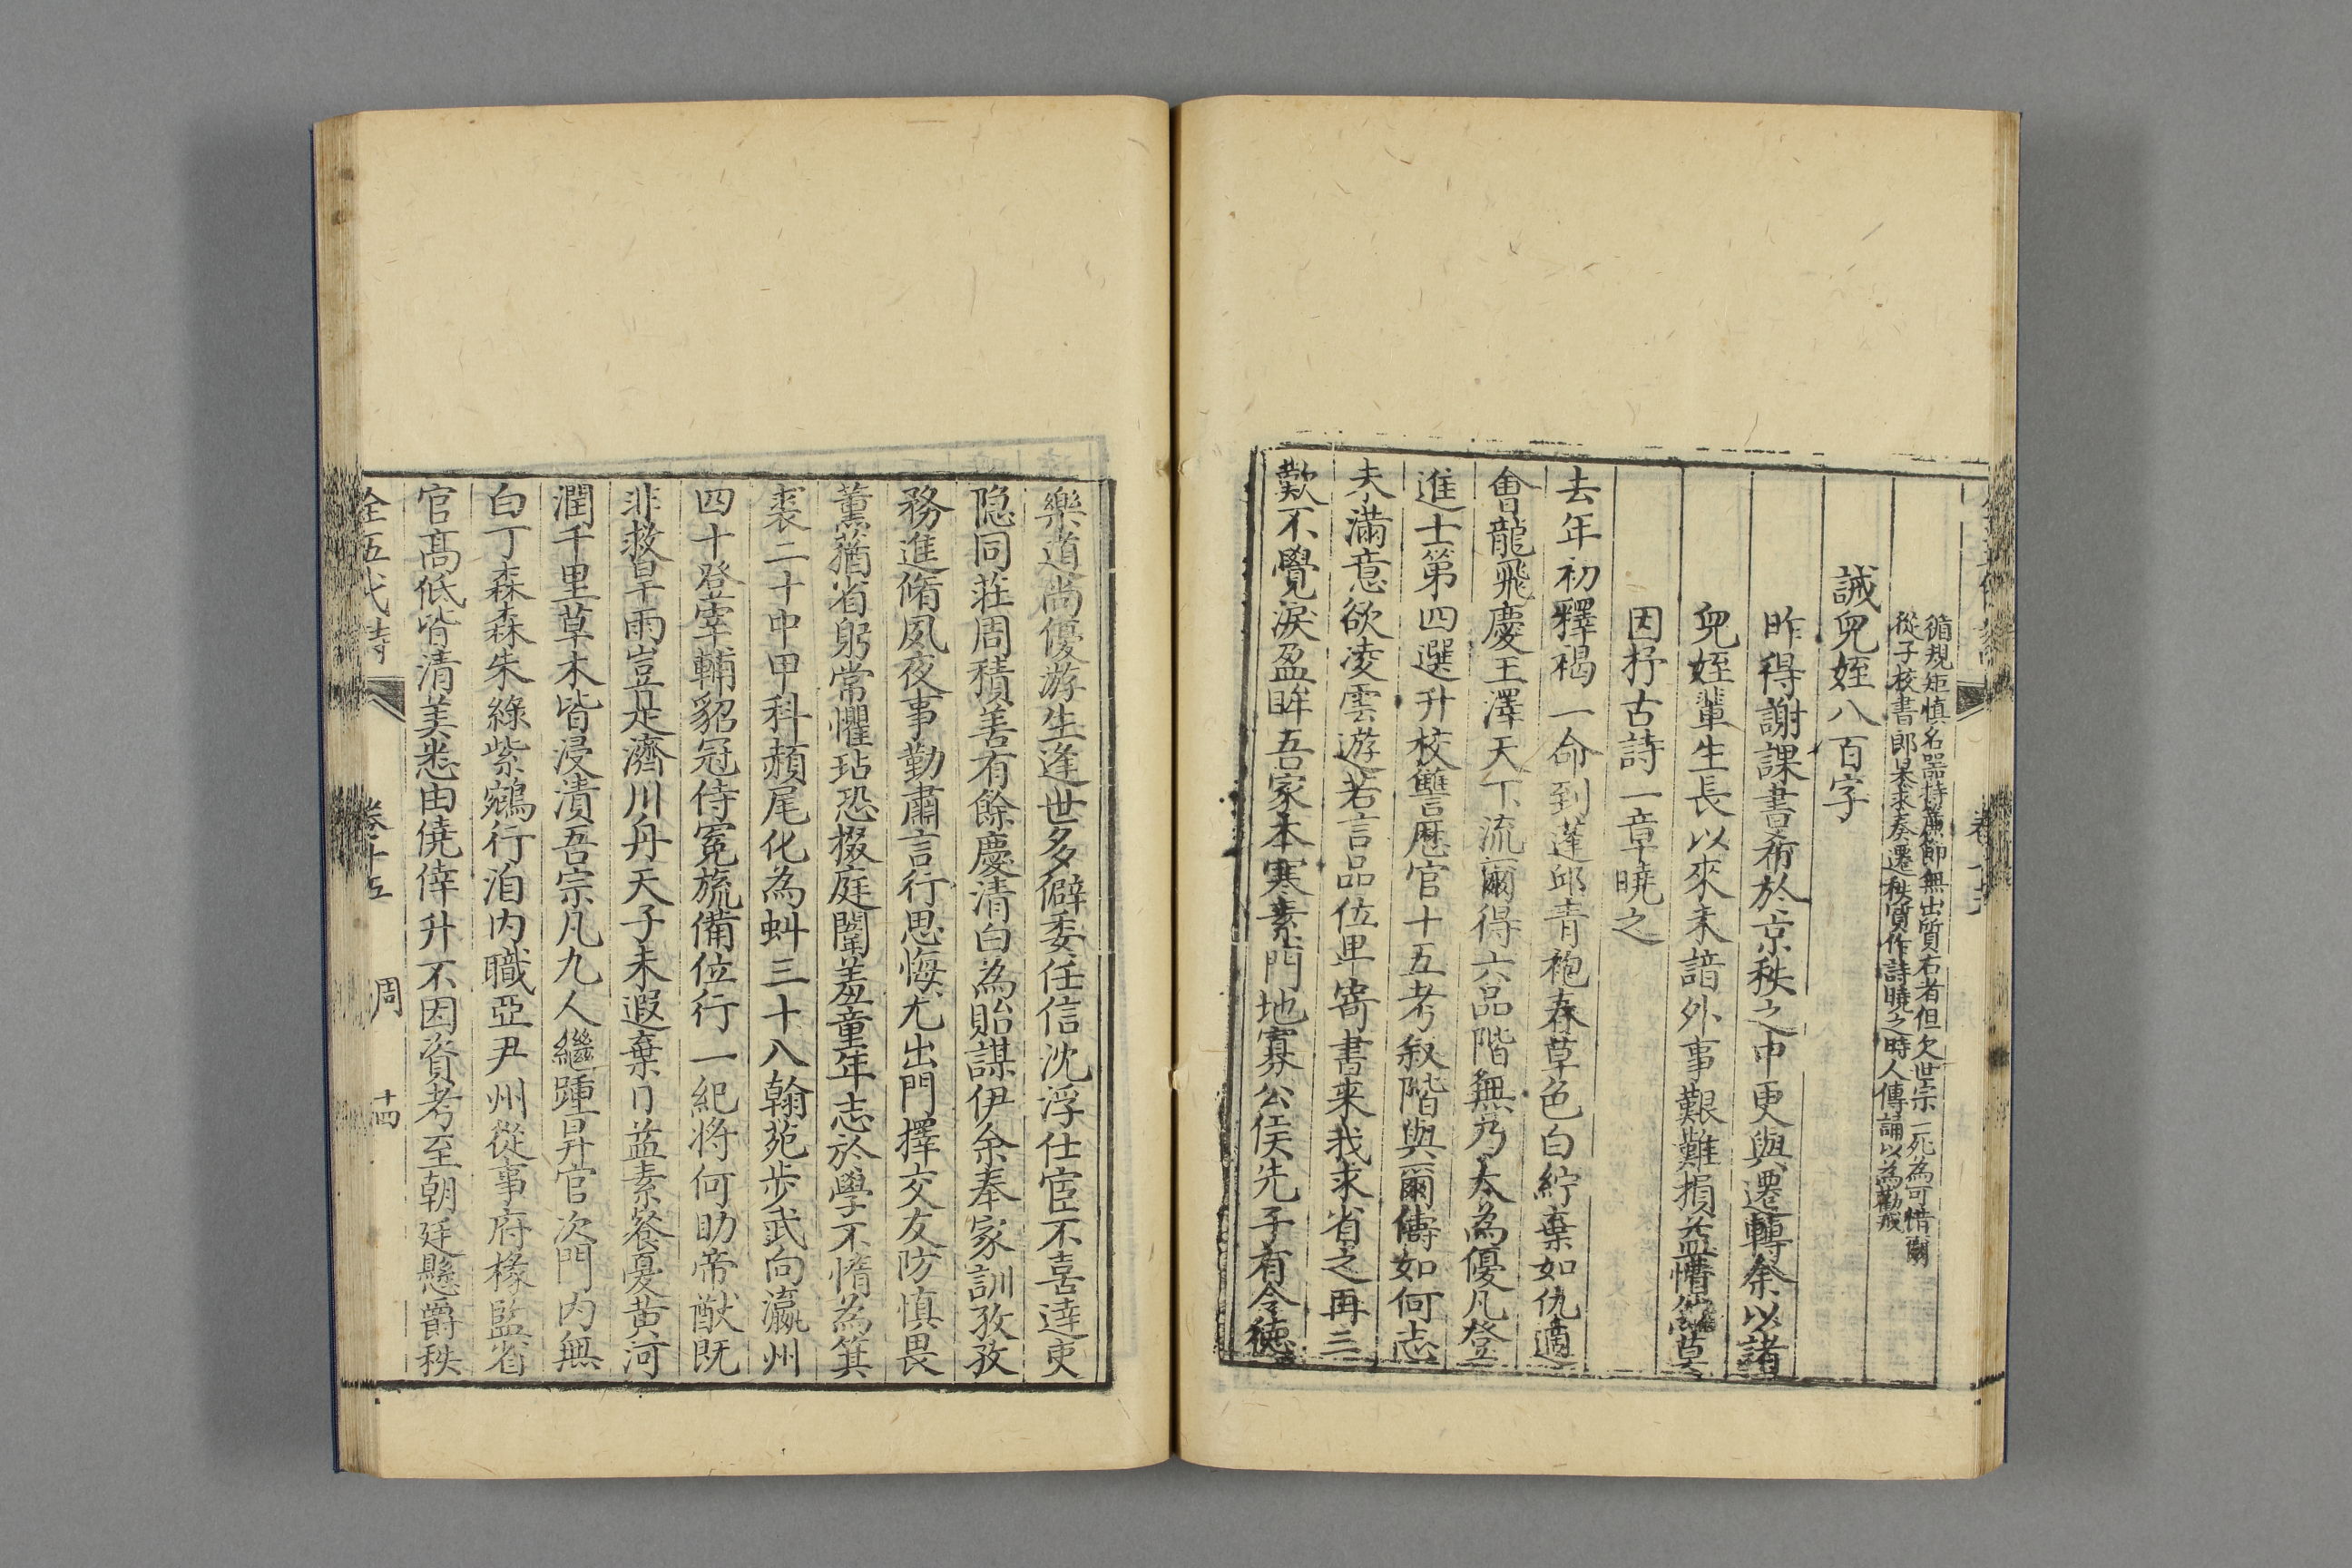 循規矩慎名器持廉節無出質右者但欠世宗一死為可惜爾
從子校書郎杲求奏遷秩質作詩曉之時人傳誦以為勸戒
誡兒姪八百字
昨得謝課書希於京秩之中更與遷轉余以諸
兒姪輩生長以來未諳外事艱難損益懵然莫
因抒古詩一章曉之
去年初釋褐一命到蓬邱青袍春草色白紵棄如仇適
會龍飛慶王澤天下流爾得六品階無乃太為優凡登
進士第四選升校讐歷官十五考叙階與爾儔如何志
未滿意欲凌雲遊若言品位卑寄書来我求省之再三
歎不覺淚盈眸吾家本寒素門地寡公侯先子有令德
樂道尚優游生逢世多僻委任信沈浮仕宦不喜達吏
隐同莊周積善有餘慶清白為貽謀伊余奉家訓孜孜
務進脩夙夜事勤肅言行思悔尤出門擇交友防慎畏
薰蕕省躬常懼玷恐掇庭闈羞童年志於學不惰為箕
裘二十中甲科赬尾化為虯三十八翰苑步武向瀛州
四十登宰輔貂冠侍冕旒備位行一紀将何助帝猷既
非救旱雨豈是濟川舟天子未遐棄日益素餐憂黄河
潤千里草木皆浸漬吾宗凡九人繼踵昇官次門内無
白丁森森朱綠紫鵷行洎内職亞尹州從事府椽監省
官髙低皆清美悉由僥倖升不因資考至朝廷懸爵秩
全五代詩 卷十五 周 十四